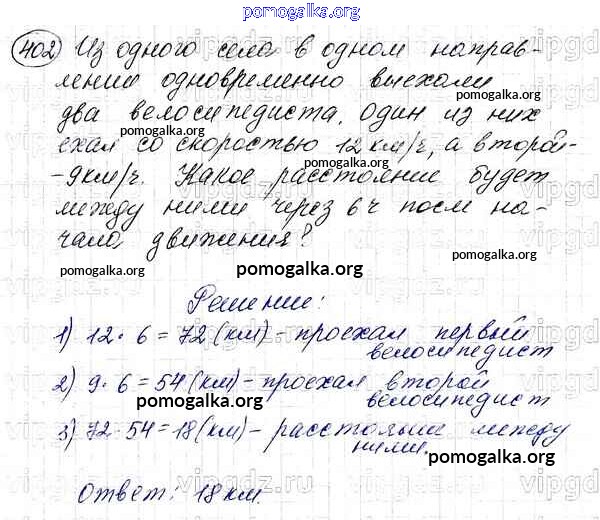 pomogalka.org
402 Из одного села в одном направ-
лении одновременно выехали
pomogalka.org
два велосипедиста. Один из них
pomogalka.org
ехал со скоростью 12 км/ч, а второй-
-9км/ч. Какое расстояние будет
pomogalka.org
между ними через 6 ч посл на-
чала движения?
pomogalka.org pomogalka.org pomogalka.org
Решение:
pomogalka.org
1) 12 · 6 = 72 (км) - проехал первый
велосипедист
2) 9 · 6 = 54 (км) - проехал второй
велосипедист
pomogalka.org
3) 72 - 54 = 18 (км) - расстояни между
ними.
pomogalka.org
Ответ: 18 км.